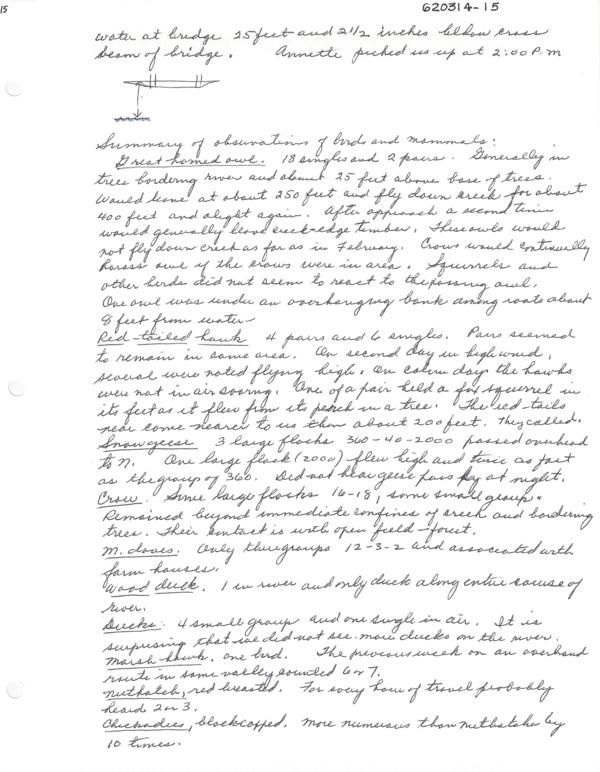 15
620314-15
water at bridge 25 feet and 2 1/2 inches below cross
beam of bridge. Annette picked us up at 2:00 P.M
Summary of observations of birds and mammals:
Great horned owl. 18 singles and 2 pairs. Generally in
trees bordering river and about 25 feet above base of trees.
Would leave at about 250 feet and fly down creek for about
400 feet and alight again. After approach a second time
would generally leave creek-edge timber. These owls would
not fly down creek as far as in February. Crows would continually
harass owl if the crows were in area. Squirrels and
other birds did not seem to react to the passing owl.
One owl was under an overhanging bank among roots about
8 feet from water.
Red-tailed hawk 4 pairs and 6 singles. Pairs seemed
to remain in same area. On second day in high wind,
several were noted flying high. On calm days the hawks
were not in air soaring. One of a pair held a fox squirrel in
its feet as it flew from its perch in a tree. The red-tails
near come nearer to us than about 200 feet. They called.
Snow geese 3 large flocks 360-40-2000 passed overhead
to N. One large flock (2000) flew high and twice as fast
as the group of 360. Did not hear geese pass by at night.
Crow. Some large flocks 16-18, some small group.
Remained beyond immediate confines of creek and bordering
trees. Their contact is with open field-forest.
M. doves. Only three groups 12-3-2 and associated with
farm houses.
Wood duck. 1 in river and only duck along entire course of
river.
Ducks. 4 small group and one single in air. It is
surprising that we did not see more ducks on the river.
Marsh hawk. one bird. The previous week on an overland
route in same valley counted 6 or 7.
Nuthatch, red breasted. For every hour of travel probably
heard 2 or 3.
Chickadees, blackcapped. More numerous than nuthatches by
10 times.